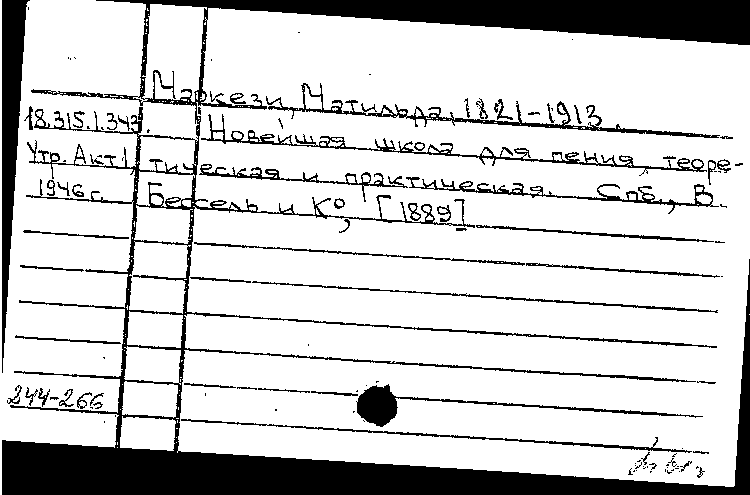 Маркези, Матильда, 1821-1913.
18.315.1.343. Новейшая школа для пения, теоре-
Утр. Акт 1, тическая и практическая. Спб., В.
1946 г. Бессель и Ко, [1889]
244-266